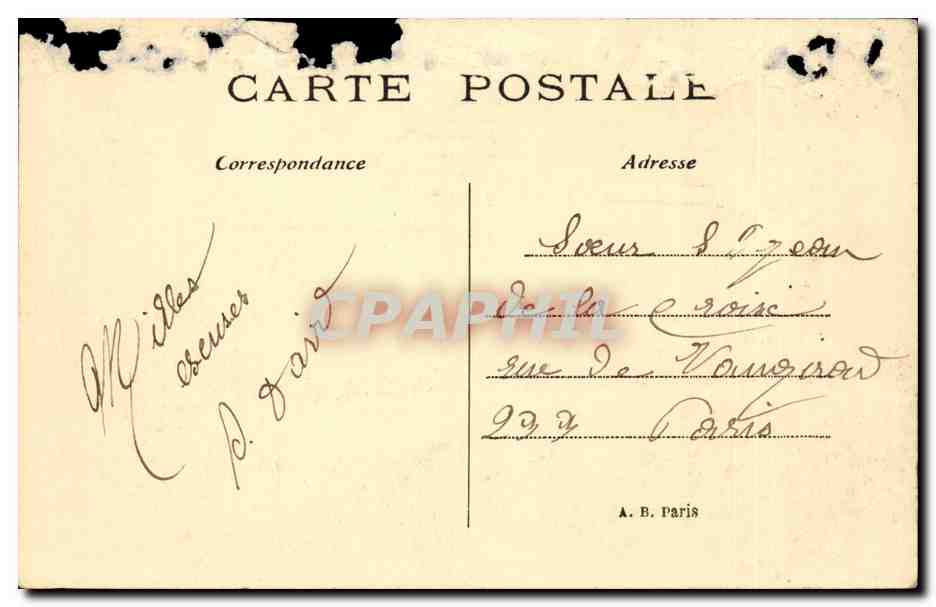 CARTE POSTALE
Correspondance
Adresse
Milles
P. David
Soeur St Jean
de la Croix
rue de Vaugirard
233 Paris
A. B. Paris
CPAPHIL